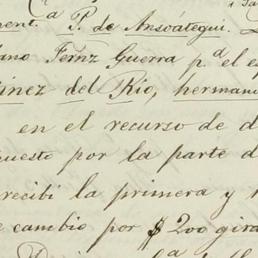 ment. a P. de Ansoátegui.
ano Fernz Guerra pa el es
ínez del Río, hermano
en el recurso de d
uesto por la parte d
recibi la primera y
e cambio por $200 gira